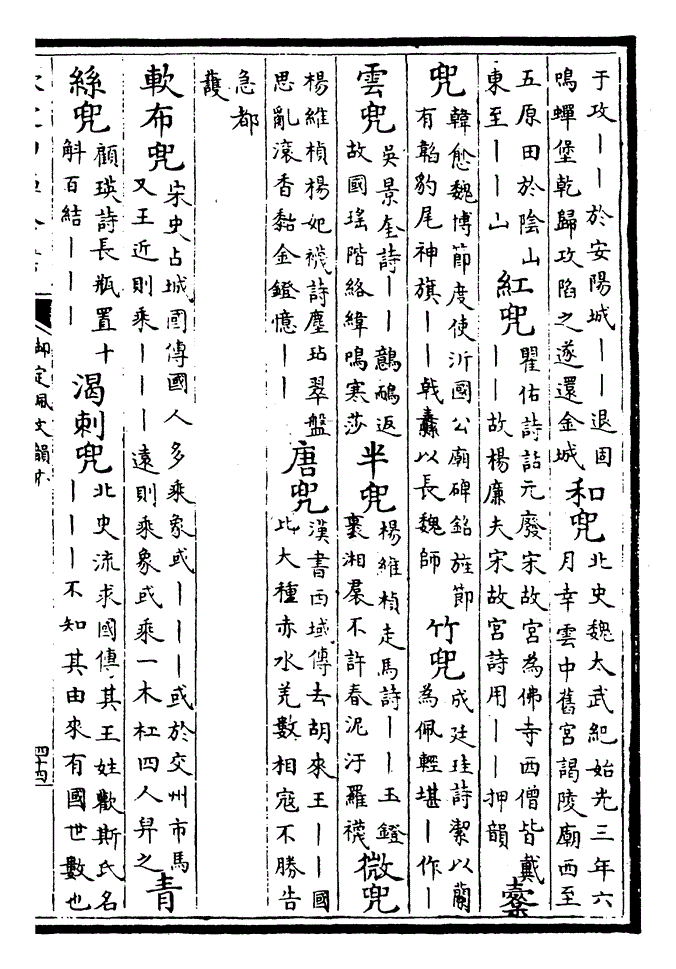 于攻｜｜於安陽城｜｜退固
鳴蟬堡乾歸攻陷之遂還金城
和兜
北史魏太武紀始光三年六
月幸雲中舊宮謁陵廟西至
五原田於陰山
東至｜｜山
紅兜
瞿佑詩詁元廢宋故宮為佛寺西僧皆戴
｜｜故楊廉夫宋故宮詩用｜｜押韻
櫜
兜
韓愈魏博節度使沂國公廟碑銘旌節
有韜豹尾神旗｜｜戟纛以長魏師
竹兜
成廷珪詩潔以蘭
為佩輕堪｜作｜
雲兜
吳景奎詩｜｜鷾鴯返
故國瑤階絡緯鳴寒莎
半兜
楊維楨走馬詩｜｜玉鐙
裹湘羣不許春泥汙羅襪
微兜
楊維楨楊妃襪詩塵玷翠盤
思亂滾香黏金鐙憶｜｜
唐兜
漢書西域傳去胡來王｜｜國
比大種赤水羌數相寇不勝告
急都
護
軟布兜
宋史占城國傳國人多乘象或｜｜｜或於交州市馬
又王近則乘｜｜｜遠則乘象或乘一木杠四人舁之
青
絲兜
顧瑛詩長瓶置十
斛百結｜｜｜
渴刺兜
北史流求國傳其王姓歡斯氏名
｜｜｜不知其由來有國世數也
御定佩文韻府
四十四